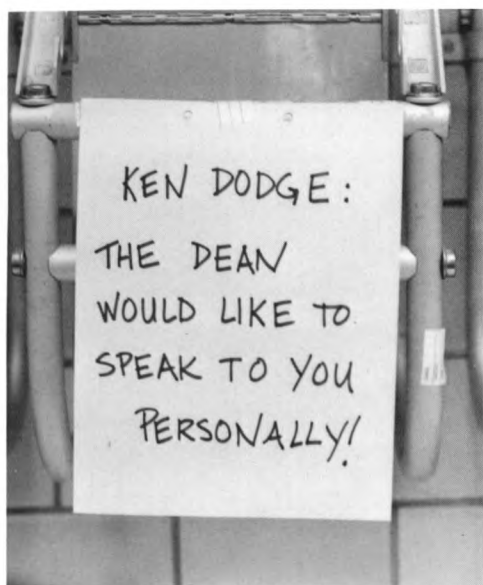 KEN DODGE:
THE DEAN
WOULD LIKE TO
SPEAK TO YOU
PERSONALLY!